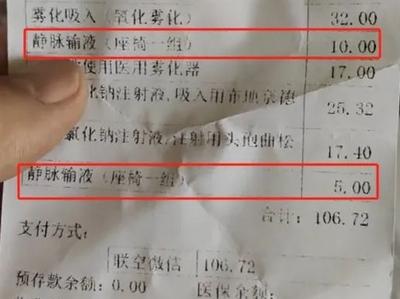 雾化吸入(氧化雾化) 32.00
静脉输液(座椅一组) 10.00
使用医用雾化器 17.00
化钠注射液,吸入用布地奈德 25.32
氯化钠注射液,注射用头孢曲松 17.40
静脉输液(座椅一组) 5.00
合计: 106.72
支付方式:
微信 106.72
预存款余额: 0.00 医保余额: